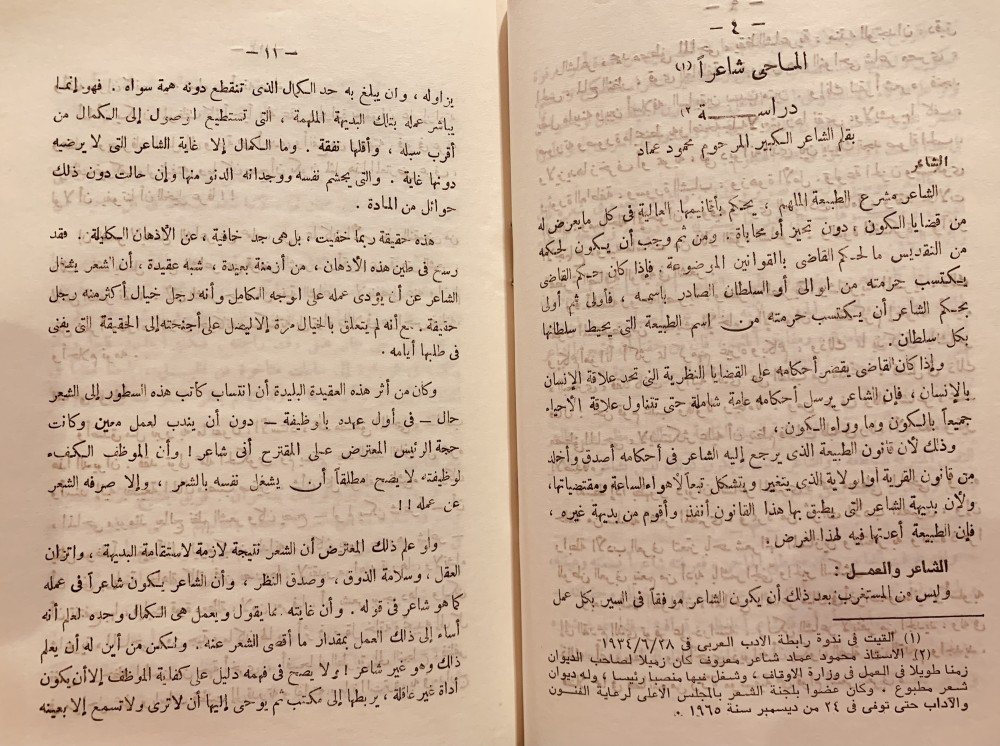 - ٤ -
الماحى شاعراً (١)
دراســـــــة (٢)
بقلم الشاعر الكبير المرحوم محمود عماد
الشاعر
الشاعر مشرع الطبيعة الملهم ، يحكم بأقانيمها العالية فى كل مايعرض له
من قضايا الكون ، دون تحيز أو محاباة . ومن ثم وجب أن يكون لحكمه
من التقديس ما لحكم القاضى بالقوانين الموضوعة . فإذا كان حكم القاضى
يكتسب حرمته من الوالى أو السلطان الصادر باسمه ، فأولى ثم أولى
بحكم الشاعر أن يكتسب حرمته من اسم الطبيعة التى يحيط سلطانها
بكل سلطان .
وإذا كان القاضى يقصر أحكامه على القضايا النظرية التى تحد علاقة الإنسان
بالإنسان ، فإن الشاعر يرسل أحكامه عامة شاملة حتى تتناول علاقة الأحياء
جميعاً بالكون وما وراء الكون .
وذلك لأن قانون الطبيعة الذى يرجع إليه الشاعر فى أحكامه أصدق وأخلد
من قانون القرية أو الولاية الذى يتغير ويتشكل تبعاً لأهواء الساعة ومقتضياتها ،
ولأن بديهة الشاعر التى يطبق بها هذا القانون أنفذ وأقوم من بديهة غيره ،
فإن الطبيعة أعدتها فيه لهذا الغرض .
الشاعر والعمــل :
وليس من المستغرب بعد ذلك أن يكون الشاعر موفقاً فى السير بكل عمل
(١) القيت فى ندوة رابطة الادب العربى فى ١٩٣٤/٦/٢٨
(٢) الاستاذ محمود عماد شاعر معروف كان زميلا لصاحب الديوان
زمنا طويلا فى العمل فى وزارة الاوقاف ، وشغل فيها منصبا رئيسا ، وله ديوان
شعر مطبوع . وكان عضوا بلجنة الشعر بالمجلس الأعلى لرعاية الفنون
والآداب حتى توفى فى ٢٤ من ديسمبر سنة ١٩٦٥ .
- ١١ -
يزاوله ، وان يبلغ به حد الكمال الذى تنقطع دونه همة سواه . فهو إنما
يباشر عمله بتلك البديهة الملهمة ، التى تستطيع الوصول إلى الكمال من
أقرب سبله ، وأقلها نفقة . وما الكمال إلا غاية الشاعر التى لا يرضيه
دونها غاية . والتى يجشم نفسه ووجدانه الدنو منها وإن حالت دون ذلك
حوائل من المادة .
هذه حقيقة ربما خفيت ، بل هى جد خافية ، عن الأذهان الكليلة . فقد
رسخ فى طين هذه الأذهان ، من أزمنة بعيدة ، شبه عقيدة ، أن الشعر يشغل
الشاعر عن أن يؤدى عمله على الوجه الكامل وأنه رجل خيال أكثر منه رجل
حقيقة . مع أنه لم يتعلق بالخيال مرة إلا ليصل على أجنحته إلى الحقيقة التى يفنى
فى طلبها أيامه .
وكان من أثر هذه العقيدة البليدة أن انتساب كاتب هذه السطور إلى الشعر
حال - فى أول عهده بالوظيفة - دون أن يندب لعمل معين وكانت
حجة الرئيس المعترض على المقترح أنى شاعر ! وأن الموظف الكفء
لوظيفته لا يصح مطلقاً أن يشغل نفسه بالشعر ، وإلا صرفه الشعر
عن عمله !!
ولو علم ذلك المعترض أن الشعر نتيجة لازمة لاستقامة البديهة ، واتزان
العقل ، وسلامة الذوق ، وصدق النظر ، وأن الشاعر يكون شاعراً فى عمله
كما هو شاعر فى قوله . وأن غايته مما يقول ويعمل هى الكمال وحده لعلم أنه
أساء إلى ذلك العمل بمقدار ما أقصى الشعر عنه . ولكن من أين له أن يعلم
ذلك وهو غير شاعر ! ولا يصح فى فهمه دليل على كفاية الموظف إلا أن يكون
أداة غير عاقلة ، يربطها إلى مكتب ثم يوحى إليها أن لا ترى ولا تسمع إلا بعينه